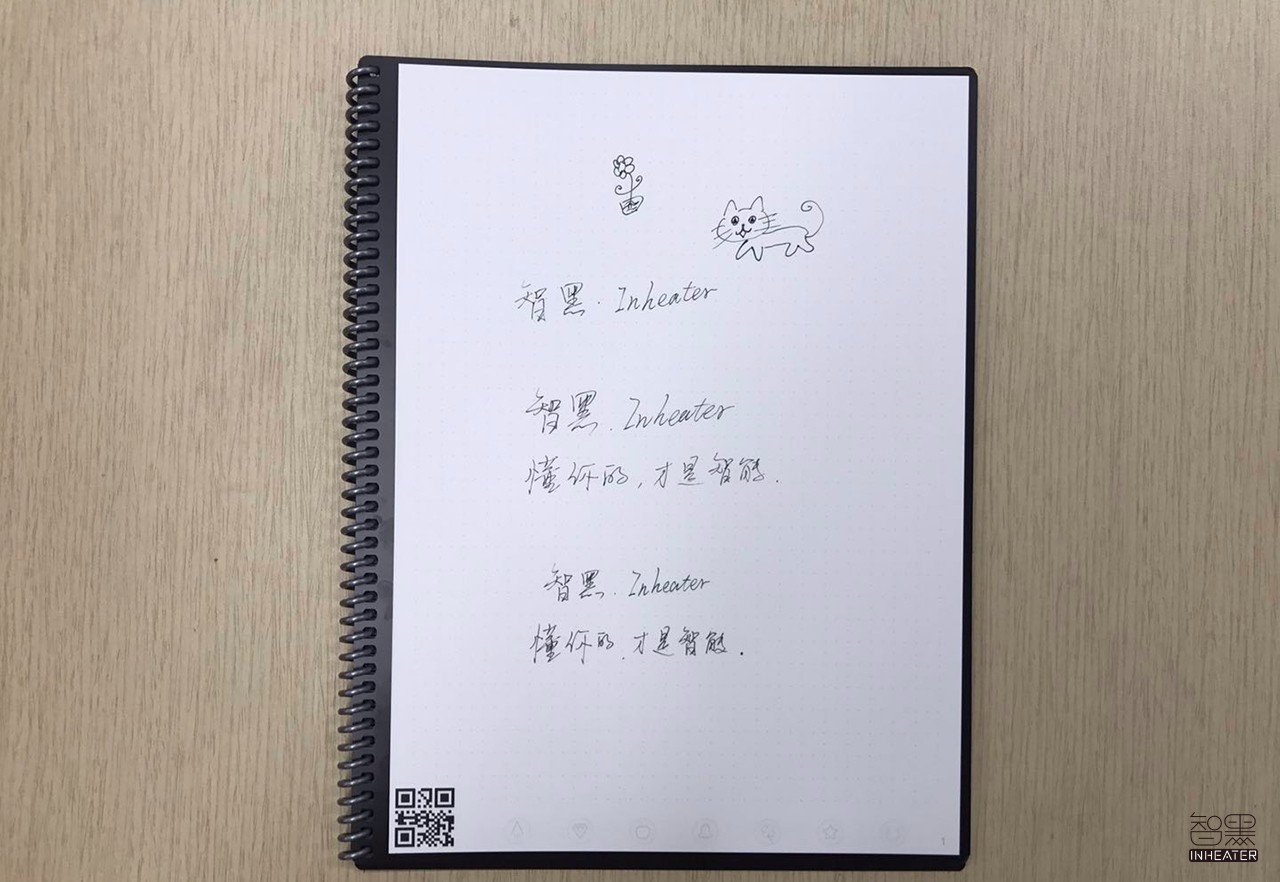 智黑·Inheater
智黑.Inheater
懂你的,才是智能.
智黑.Inheater
懂你的.才是智能.
1
智黑
INHEATER